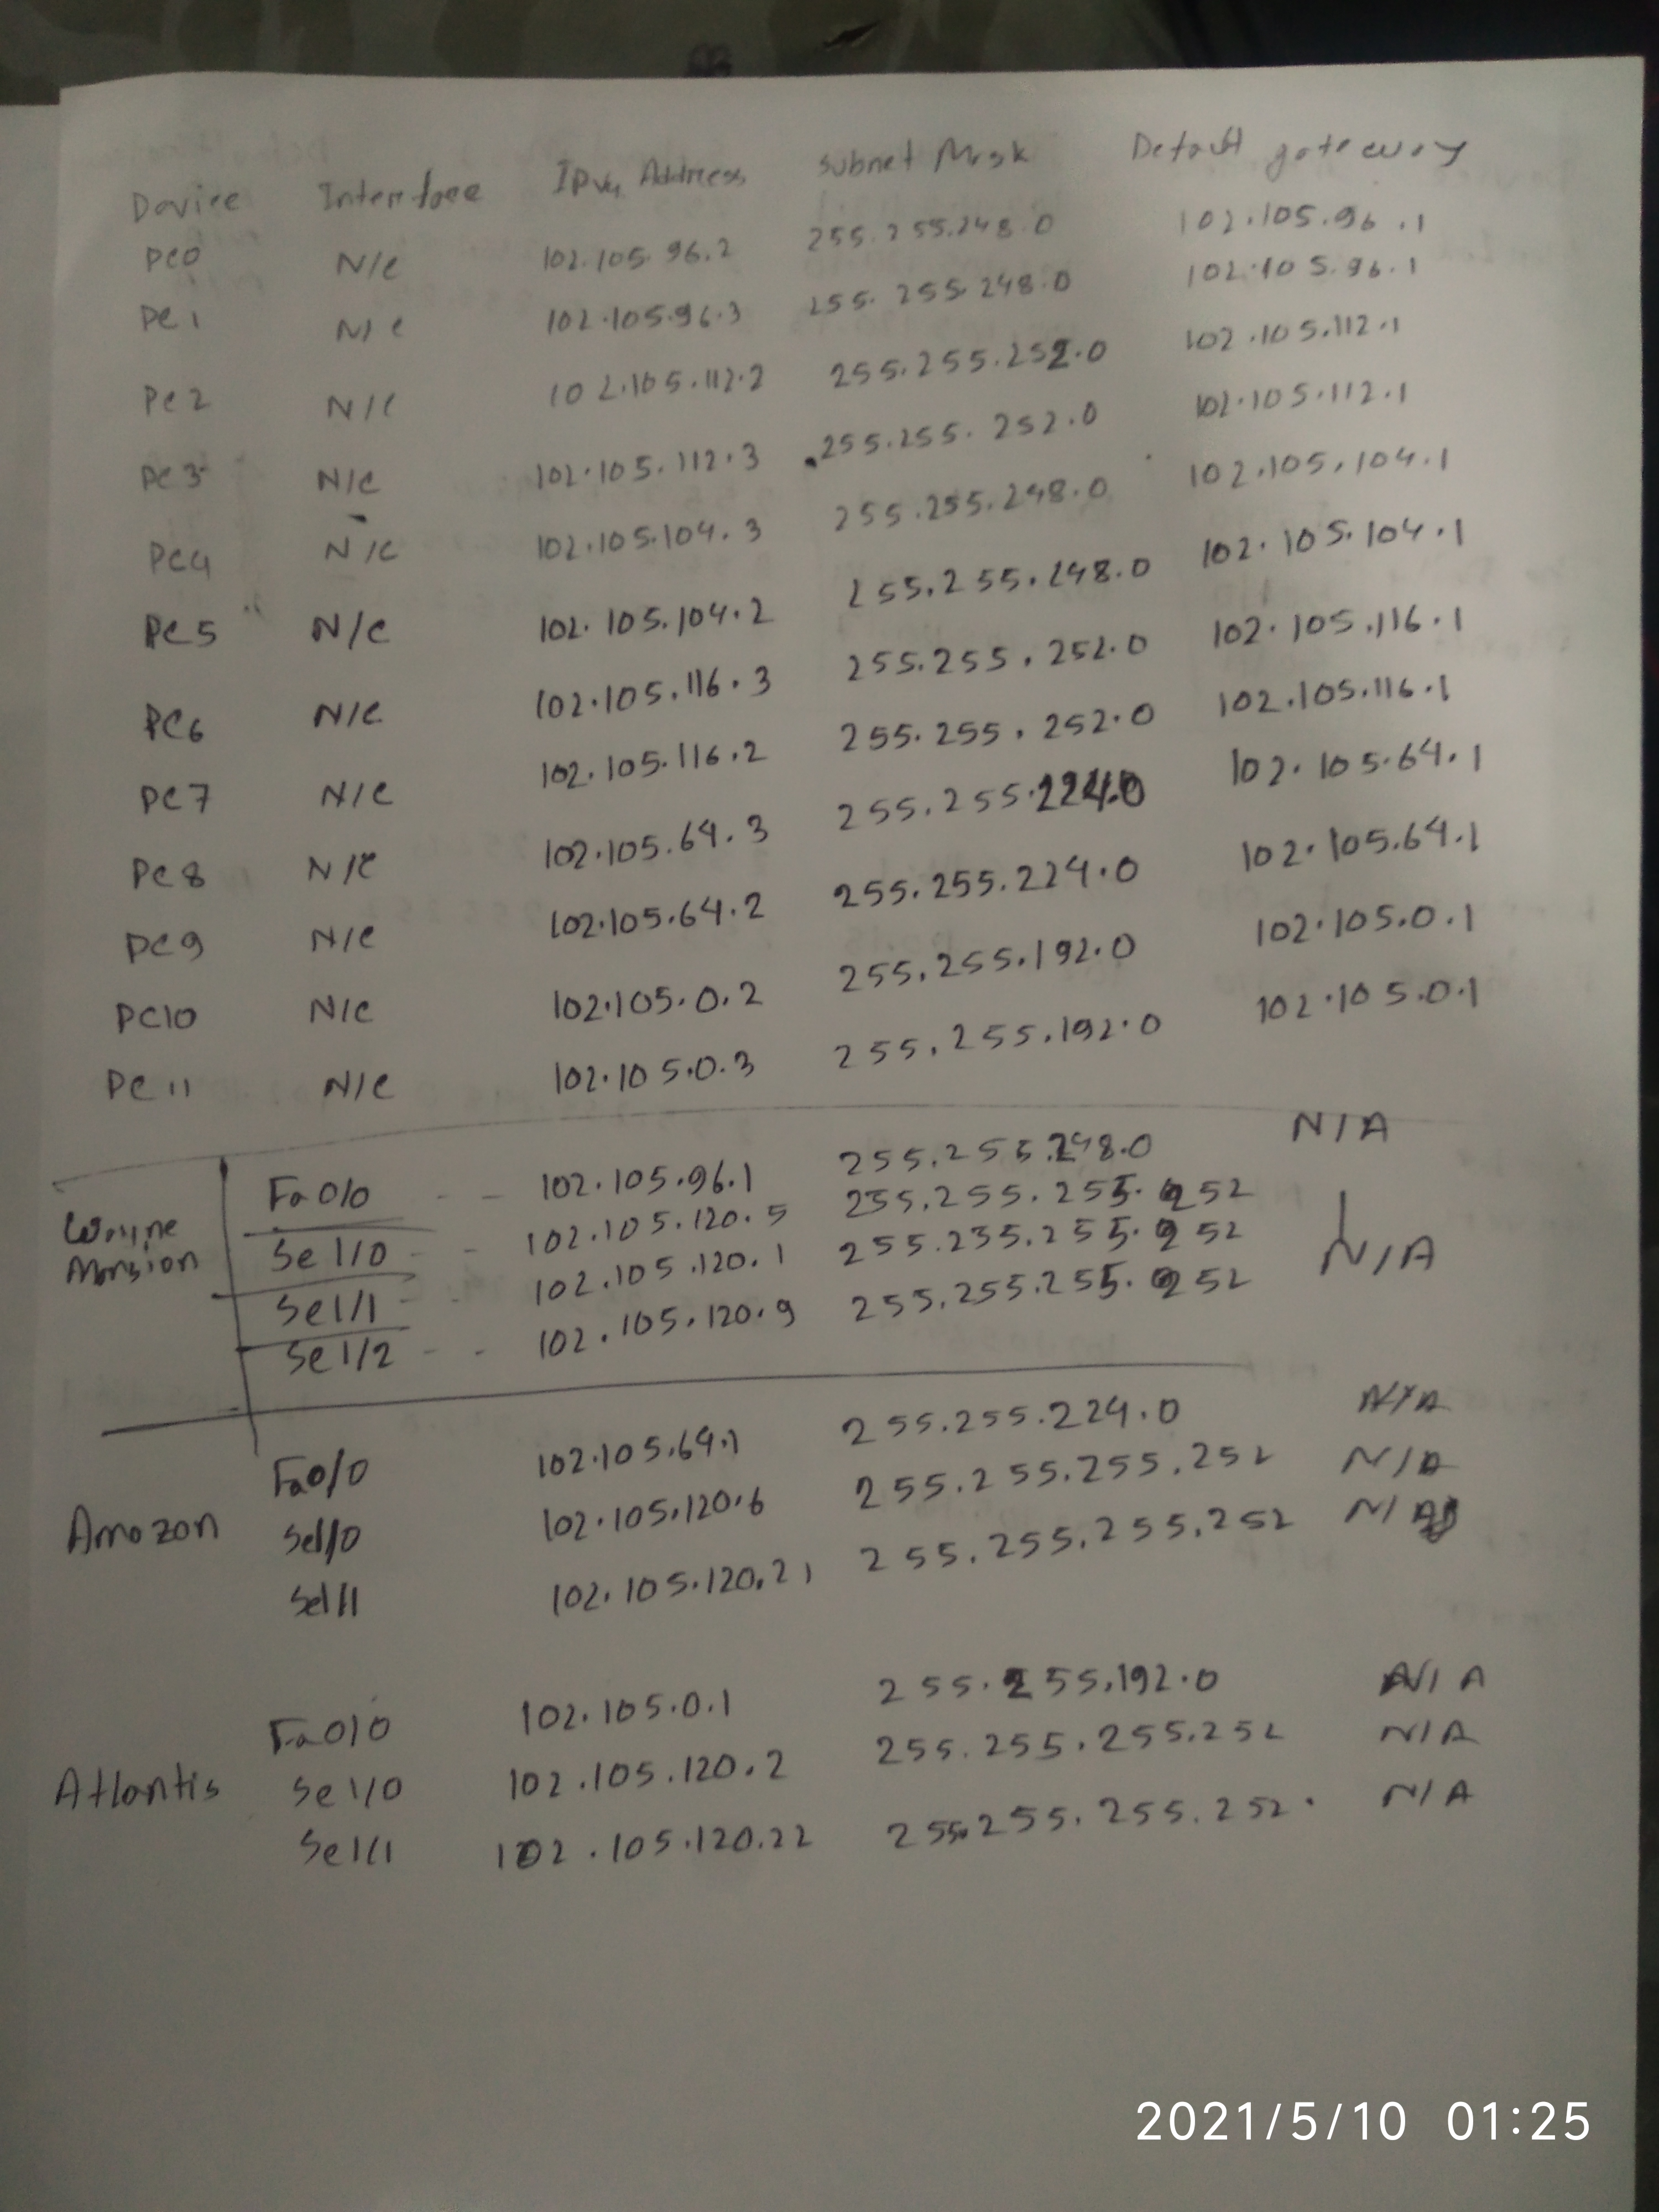 Device Interface IPv4 Address Subnet Mask Default gateway
PC0 N/C 102.105.96.2 255.255.248.0 102.105.96.1
PC1 N/C 102.105.96.3 255.255.248.0 102.105.96.1
PC2 N/C 102.105.112.2 255.255.252.0 102.105.112.1
PC3 N/C 102.105.112.3 255.255.252.0 102.105.112.1
PC4 N/C 102.105.104.3 255.255.248.0 102.105.104.1
PC5 N/C 102.105.104.2 255.255.248.0 102.105.104.1
PC6 N/C 102.105.116.3 255.255.252.0 102.105.116.1
PC7 N/C 102.105.116.2 255.255.252.0 102.105.116.1
PC8 N/C 102.105.64.3 255.255.224.0 102.105.64.1
PC9 N/C 102.105.64.2 255.255.224.0 102.105.64.1
PC10 N/C 102.105.0.2 255.255.192.0 102.105.0.1
PC11 N/C 102.105.0.3 255.255.192.0 102.105.0.1
Wayne Mansion
Fa0/0 - - 102.105.96.1 255.255.248.0 N/A
Se1/0 - - 102.105.120.5 255.255.255.252
Se1/1 - - 102.105.120.1 255.255.255.252 N/A
Se1/2 - - 102.105.120.9 255.255.255.252
Fa0/0 102.105.64.1 255.255.224.0 N/A
Amazon Se1/0 102.105.120.6 255.255.255.252 N/A
Se1/1 102.105.120.21 255.255.255.252 N/A
Fa0/0 102.105.0.1 255.255.192.0 N/A
Atlantis Se1/0 102.105.120.2 255.255.255.252 N/A
Se1/1 102.105.120.22 255.255.255.252. N/A
2021/5/10 01:25